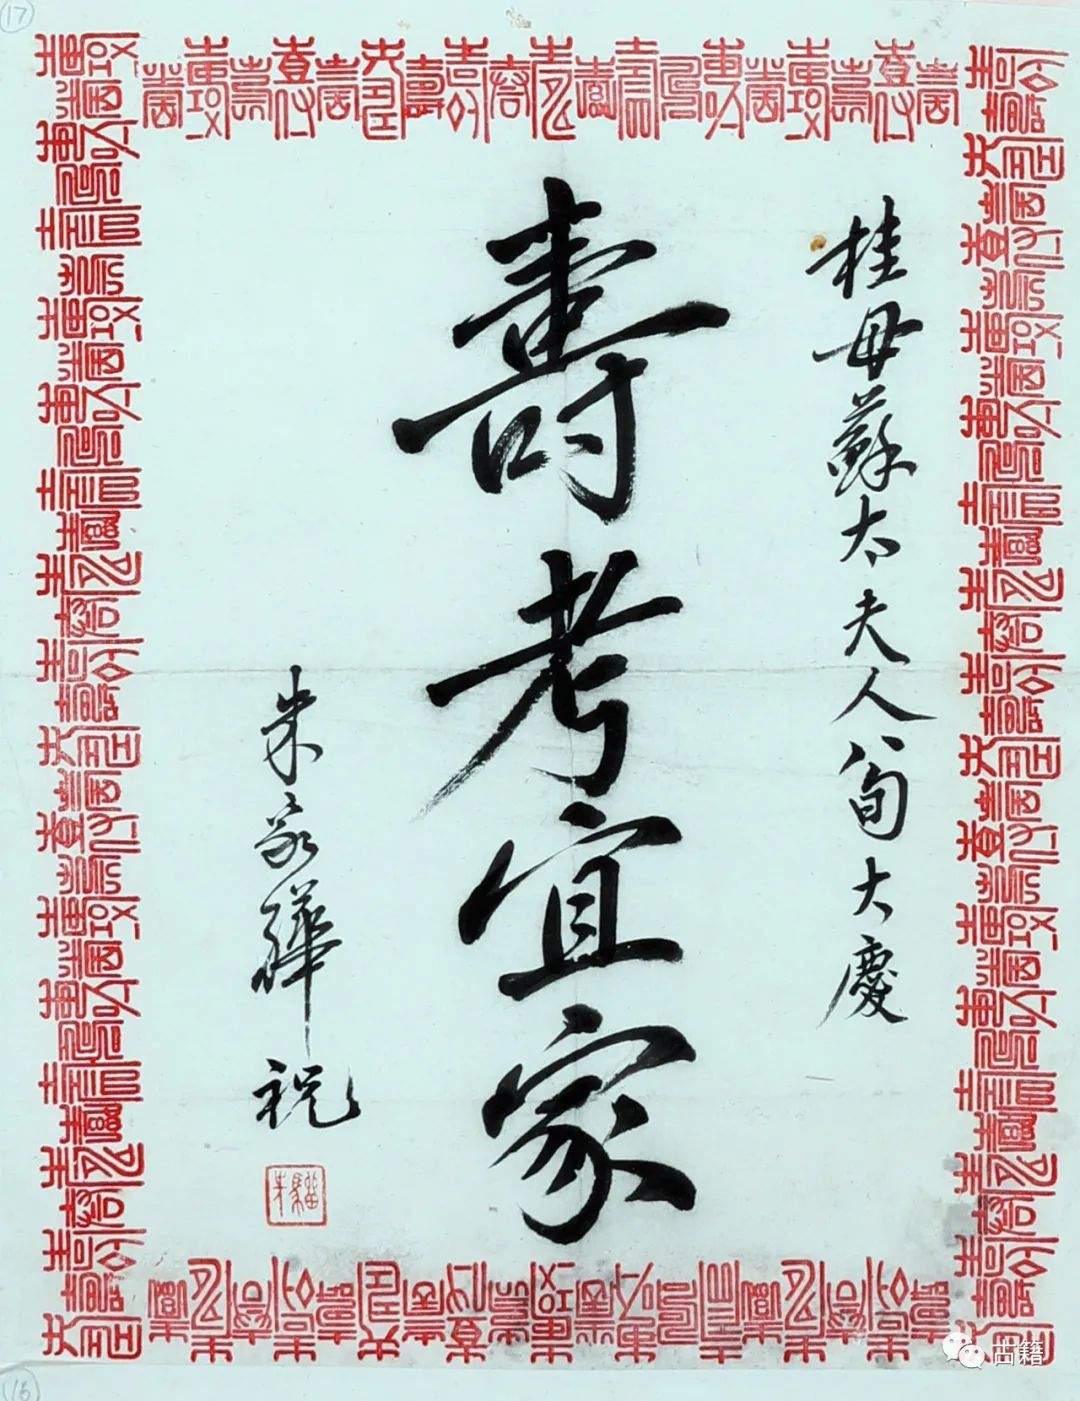 桂母蘇太夫人八旬大慶
壽考宜家
朱家驊祝
17
16
古籍